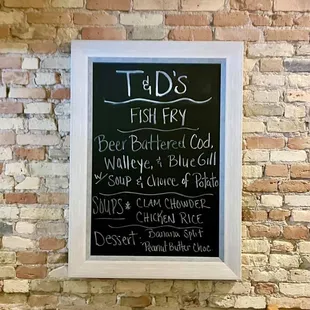 T&D'S
FISH FRY
Beer Battered Cod,
Walleye, & Blue Gill
w/ Soup & Choice of Potato
SOUPS & CLAM CHOWDER
CHICKEN RICE
Dessert: Banana Split
Peanut Butter Choc